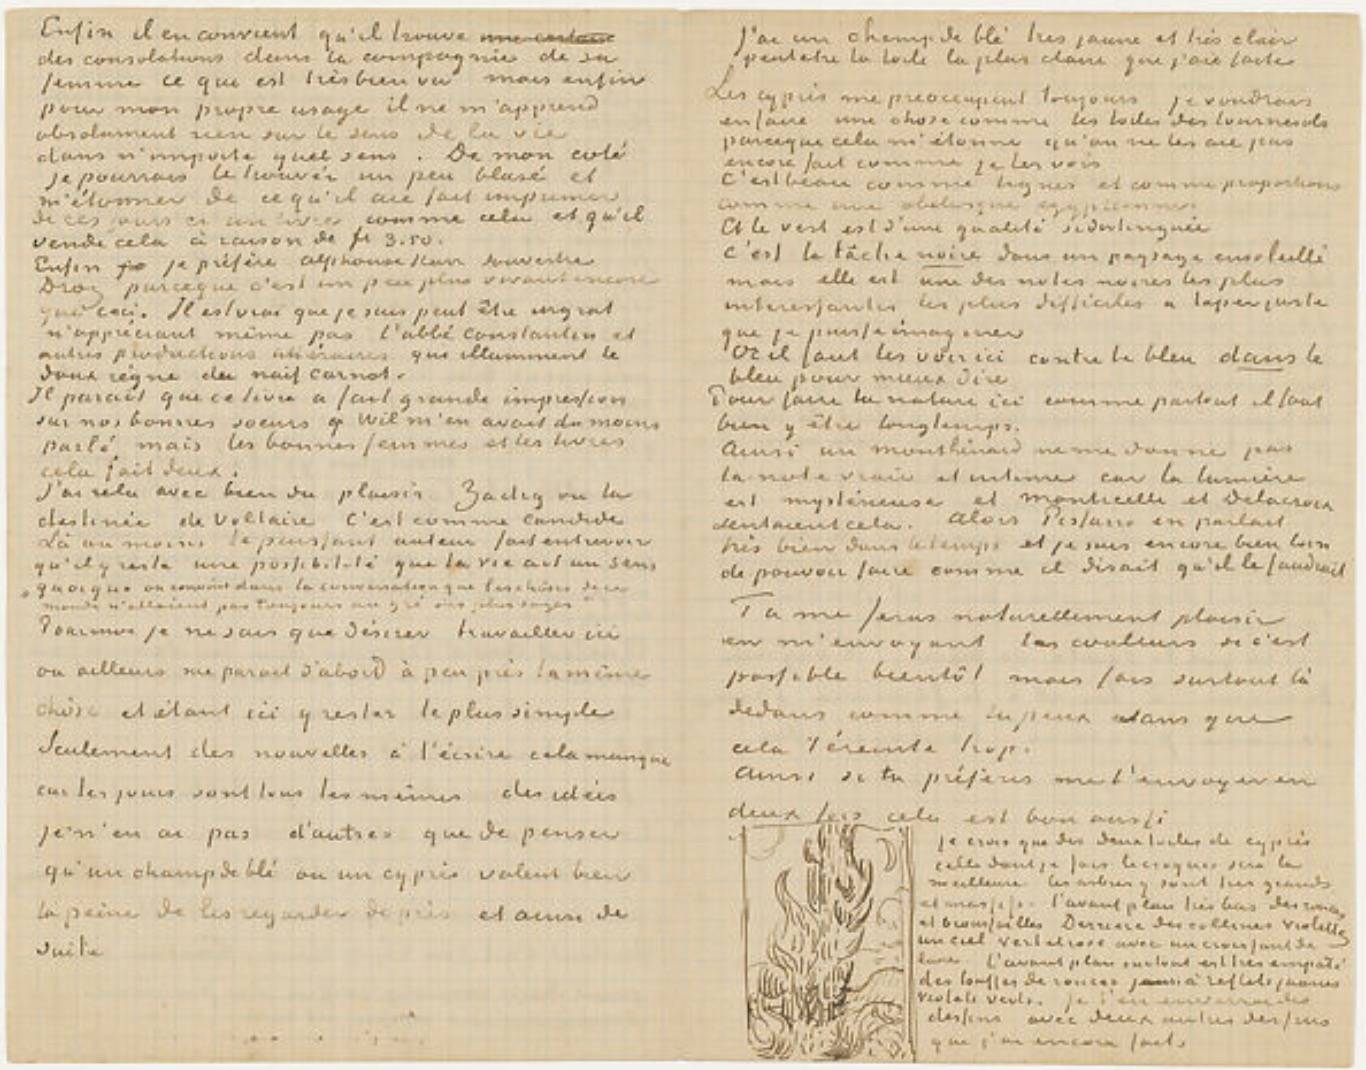 Enfin il en convient qu'il trouve une certaine
des consolations dans la compagnie de sa
femme ce que est très bien vu mais enfin
pour mon propre usage il ne m'apprend
absolument rien sur le sens de la vie
dans n'importe quel sens. De mon coté
je pourrais le trouver un peu blasé et
m'étonner de ce qu'il aie fait imprimer
de ces jours ci un livre comme cela et qu'il
vende cela à raison de fr 3.50.
Enfin je préfère alphonse Karr souvestre
Droz parceque c'est un peu plus vivant encore
que ceci. Il est vrai que je suis peut être ingrat
n'appréciant même pas l'abbé Constantin et
autres productions litéraires qui illumment le
doux règne du naif Carnot.
Il parait que ce livre a fait grande impression
sur nos bonnes soeurs Wil m'en avait du moins
parlé mais les bonnes femmes et les livres
cela fait deux.
J'ai relu avec bien du plaisir Zadig ou la
destinée de Voltaire C'est comme candide
Là au moins le puissant auteur fait entrevoir
qu'il y reste une possibilité que la vie ait un sens
"quoique on convint dans la conversation que les choses de ce
monde n'allaient pas toujours au gré des plus sages"
Pour moi je ne sais que désirer travailler ici
ou ailleurs me parait d'abord à peu près la même
chose et étant ici y rester le plus simple
Seulement des nouvelles à t'écrire cela manque
car les jours sont tous les mêmes des idées
je n'en ai pas d'autres que de penser
qu'un champ de blé ou un cyprès valent bien
la peine de les regarder de près et ainsi de
suite
J'ai un champ de blé très jaune et très clair
peutetre la toile la plus claire que j'aie faite
Les cyprès me préoccupent toujours je voudrais
en faire une chose comme les toiles des tournesols
parceque cela m'étonne qu'on ne les aie pas
encore fait comme je les vois
C'est beau comme lignes et comme proportions
comme une obelisque egyptienne.
Et le vert est d'une qualité si distinguée
C'est la tâche noire dans un paysage ensoleillé
mais elle est une des notes noires les plus
interessantes les plus difficiles a taper juste
que je puisse imaginer
Or il faut les voir ici contre le bleu dans le
bleu pour mieux dire
Pour faire la nature ici comme partout il faut
bien y être longtemps.
Ainsi un monthénard ne me donne pas
la note vraie et intime car la lumière
est mystérieuse et Monticelli et Delacroix
sentaient cela. Alors Pissarro en parlait
très bien dans le temps et je suis encore bien loin
de pouvoir faire comme il disait qu'il le faudrait
Tu me feras naturellement plaisir
en m'envoyant les couleurs si c'est
possible bientôt mais fais surtout là
dedans comme tu peux sans que
cela t'éreinte trop.
Ainsi si tu préfères me l'envoyer en
deux fois cela est bon aussi
Je crois que des deux toiles de cyprès
celle dont je fais le croquis sera la
meilleure les arbres y sont très grands
et massifs. l'avant plan très bas des ronces
et broussailles Derriere des collines violettes
un ciel vert et rose avec un croissant de
lune. L'avant plan surtout est très empaté
des touffes de ronces à reflets jaunes
violets verts. Je t'en enverrai des
dessins avec deux autres dessins
que j'ai encore faits.